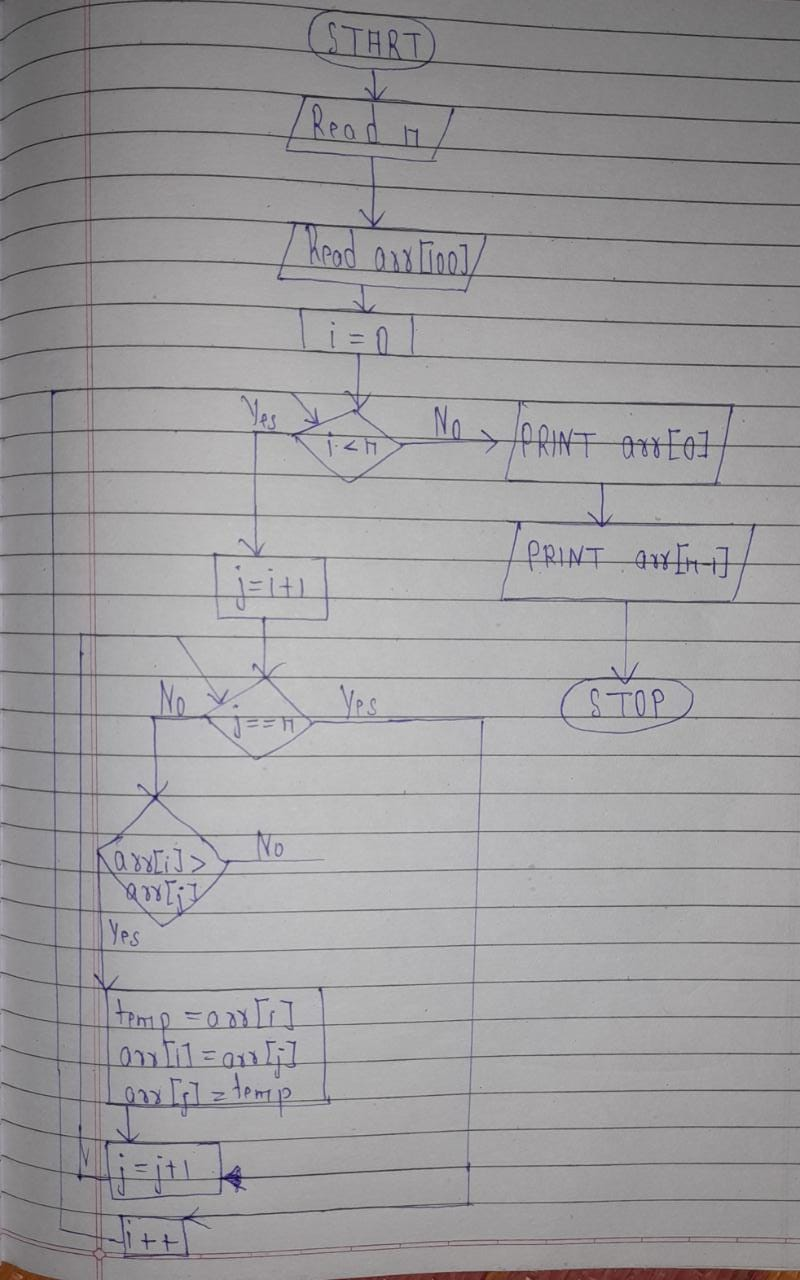 START
Read n
Read arr[100]
i = 0
Yes
i < n
No
PRINT arr[0]
PRINT arr[n-1]
STOP
j=i+1
No
j==n
Yes
arr[i] >
arr[j]
No
Yes
temp = arr[i]
arr[i] = arr[j]
arr[j] = temp
j = j+1
i++